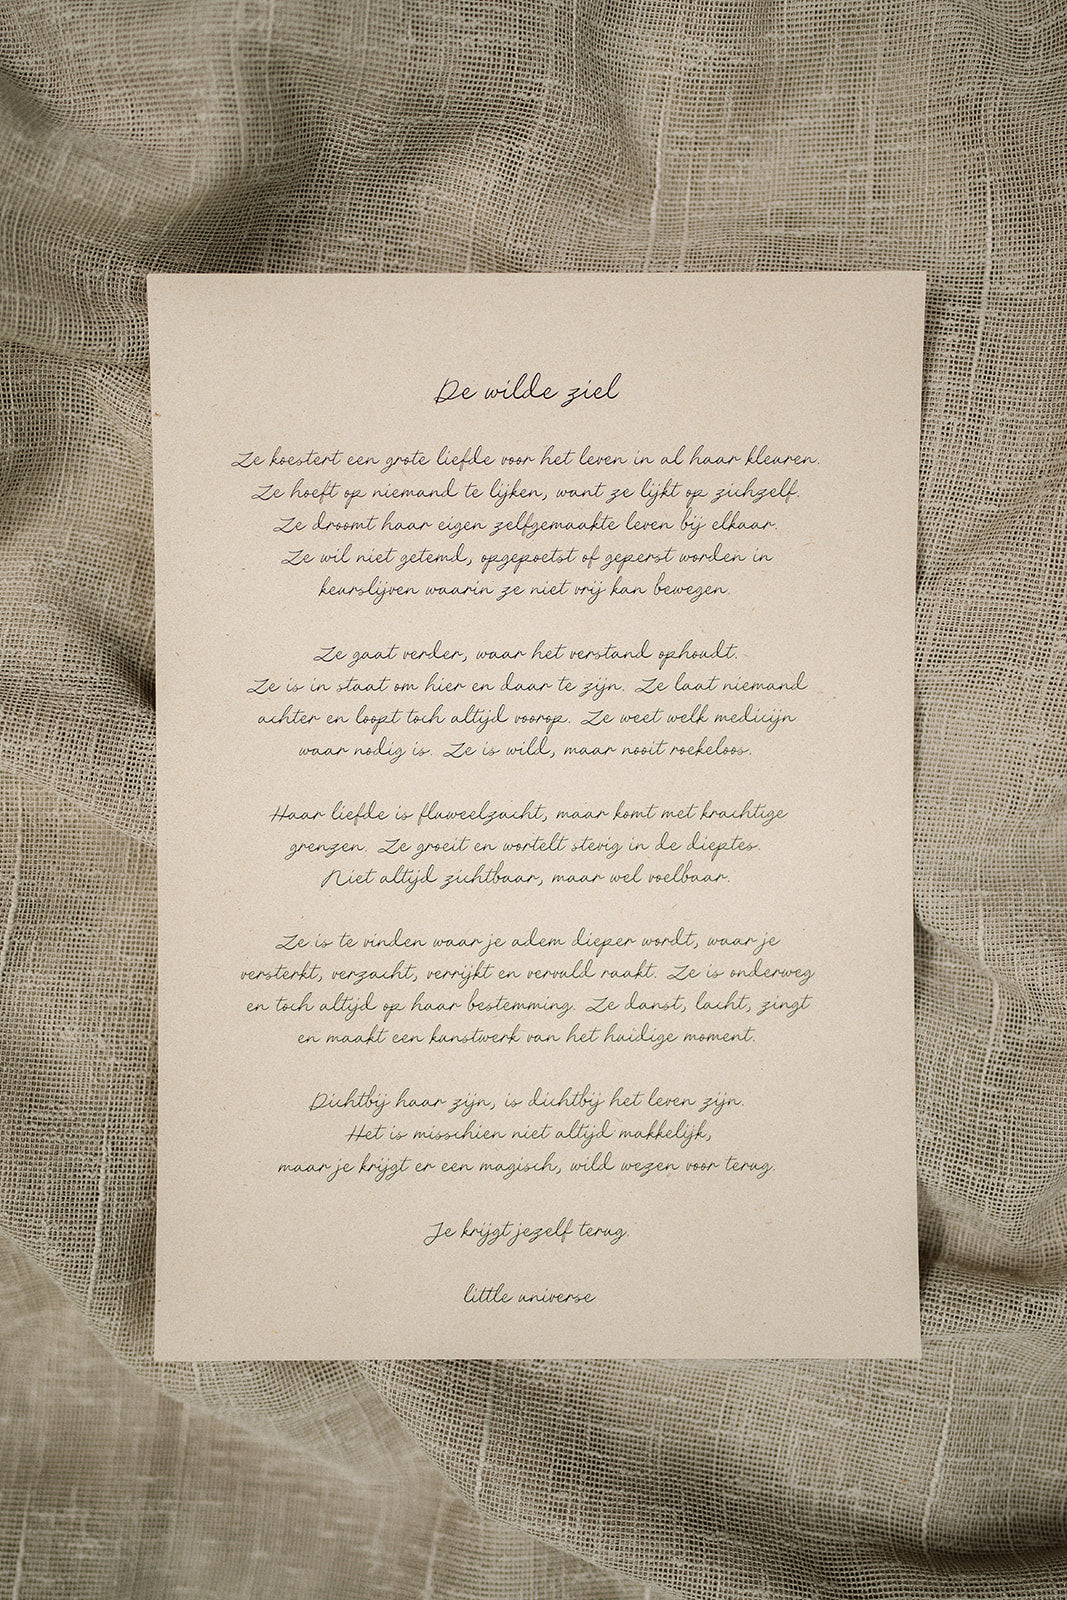 De wilde ziel
Ze koestert een grote liefde voor het leven in al haar kleuren.
Ze hoeft op niemand te lijken, want ze lijkt op zichzelf.
Ze droomt haar eigen zelfgemaakte leven bij elkaar.
Ze wil niet getemd, opgepoetst of geperst worden in
keurslijven waarin ze niet vrij kan bewegen.
Ze gaat verder, waar het verstand ophoudt.
Ze is in staat om hier en daar te zijn. Ze laat niemand
achter en loopt toch altijd voorop. Ze weet welk medicijn
waar nodig is. Ze is wild, maar nooit roekeloos.
Haar liefde is fluweelzacht, maar komt met krachtige
grenzen. Ze groeit en wortelt stevig in de dieptes.
Niet altijd zichtbaar, maar wel voelbaar.
Ze is te vinden waar je adem dieper wordt, waar je
versterkt, verzacht, verrijkt en vervuld raakt. Ze is onderweg
en toch altijd op haar bestemming. Ze danst, lacht, zingt
en maakt een kunstwerk van het huidige moment.
Dichtbij haar zijn, is dichtbij het leven zijn.
Het is misschien niet altijd makkelijk,
maar je krijgt er een magisch, wild wezen voor terug.
Je krijgt jezelf terug.
little universe